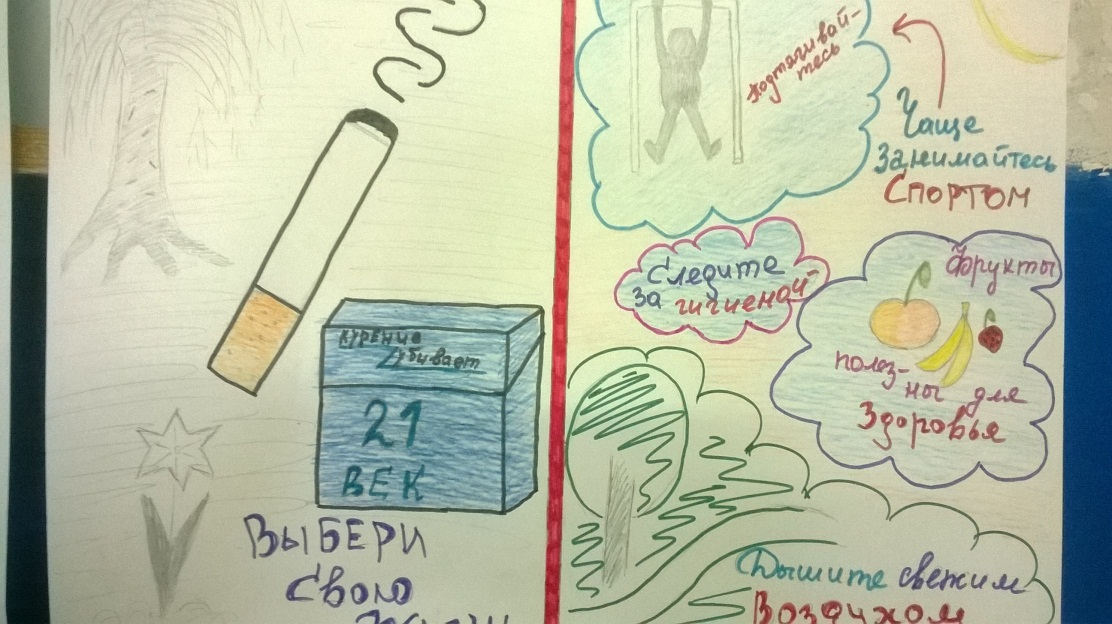 Курение
Убивает
21
ВЕК
ВЫБЕРИ
Свою
Подтягивай-
тесь
Чаще
Занимайтесь
СПОРТОМ
Следите
за гигиеной
Фрукты
полез-
ны для
Здоровья
Дышите свежим
Воздухом